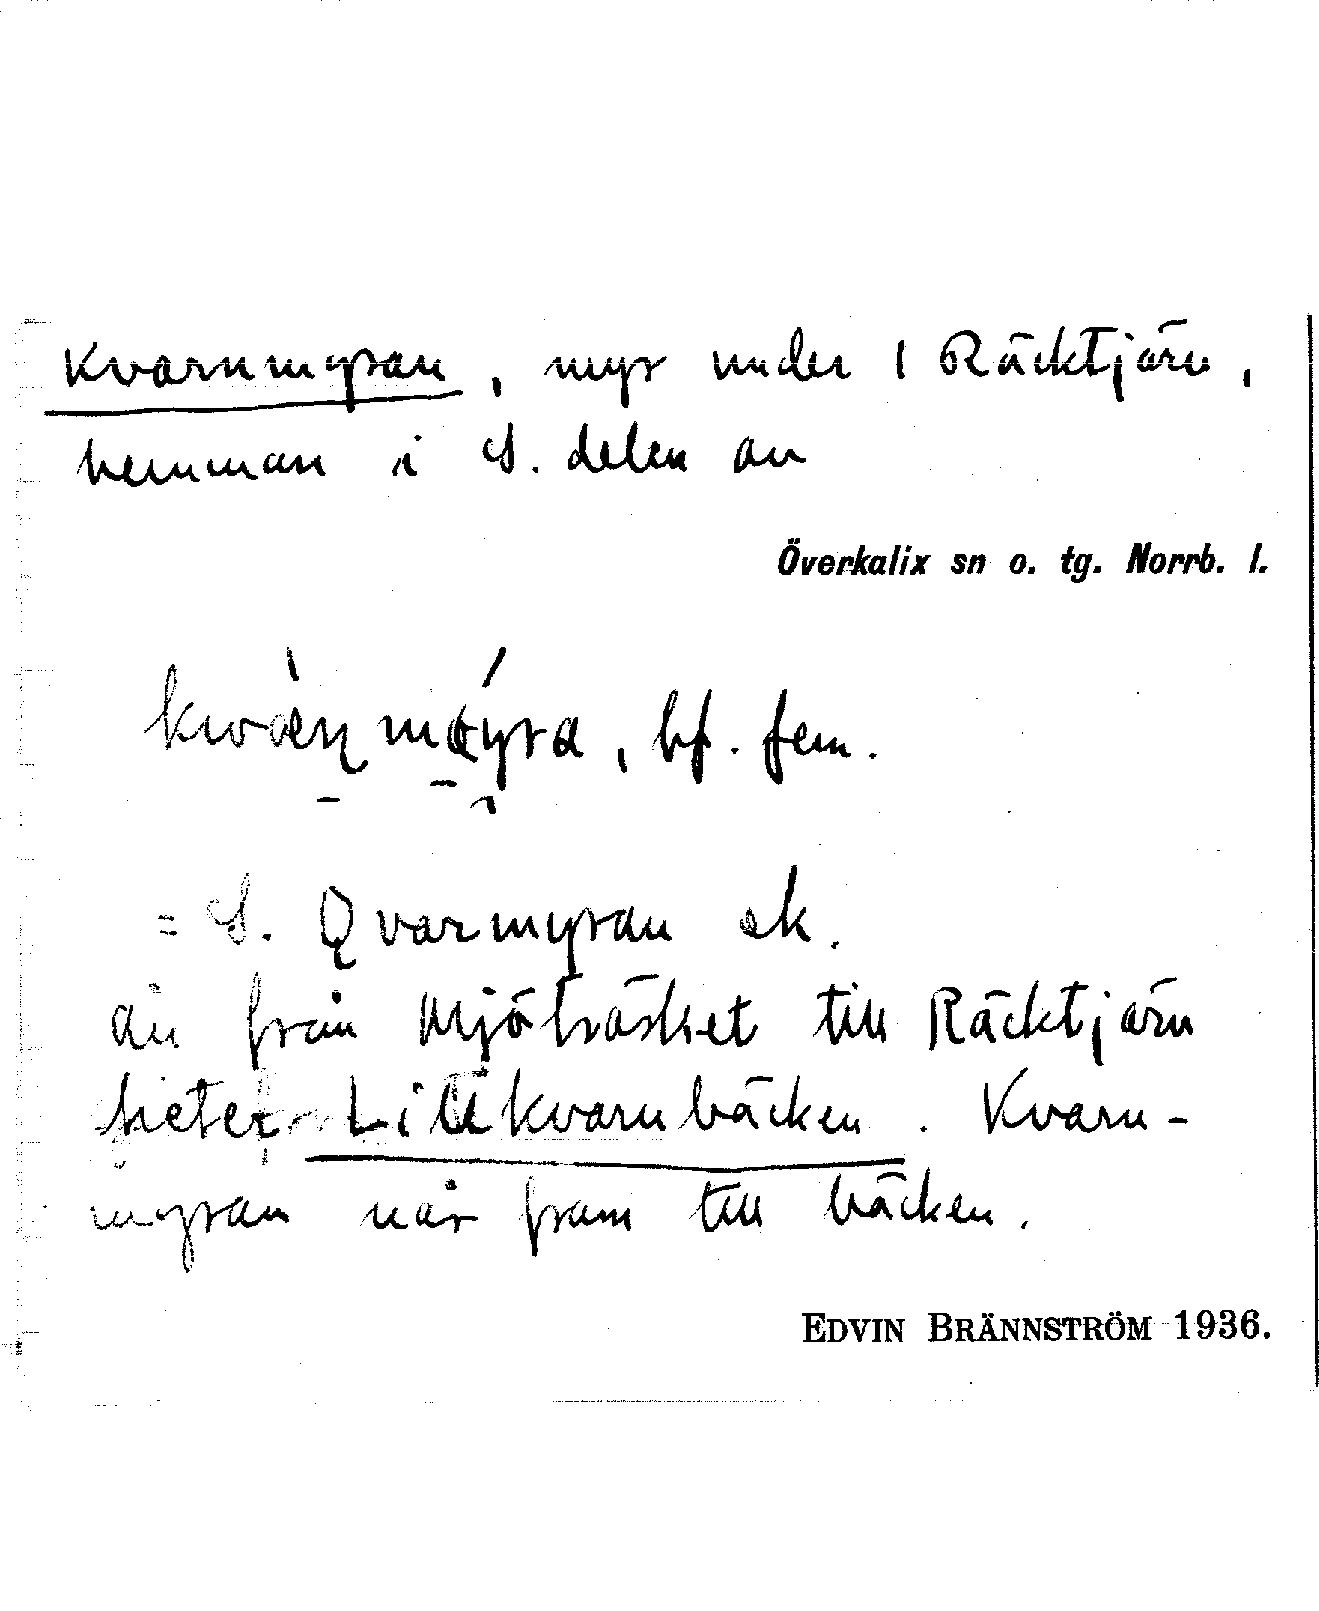 Kvarnmyran, myr under 1 Räcktjärn,
hemman i S. delen av
Överkalix sn o. tg. Norrb. l.
bf. fem.
= S. Qvarmyran ek.
ån från Mjöträsket till Räcktjärn
heter Lillkvarnbäcken. Kvarn-
myran når fram till bäcken.
EDVIN BRÄNNSTRÖM 1936.